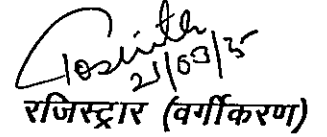 21/03/25
रजिस्ट्रार (वर्गीकरण)